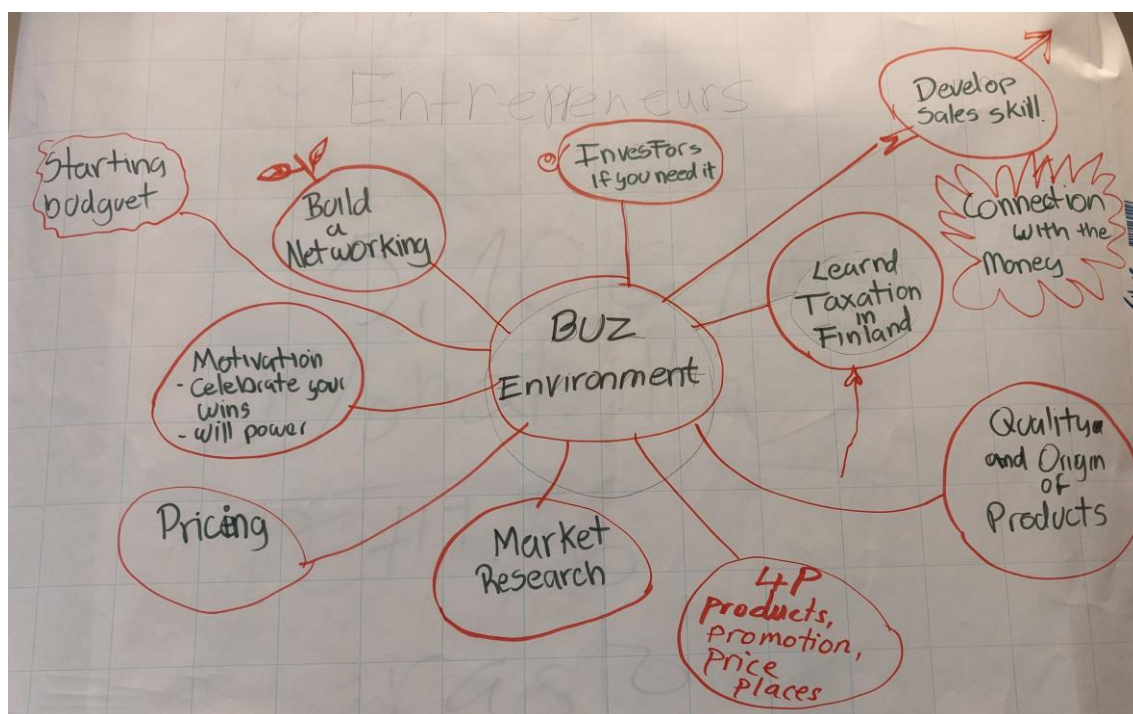 Entrepreneurs
Starting
budguet
Build
a
Networking
Investors
if you need it
Develop
Sales skill.
Connection
with the
Money
Learnd
Taxation
in
Finland
BUZ
Environment
Motivation
- Celebrate your
wins
- will power
Pricing
Market
Research
4P
Products,
Promotion,
Price
Places
Quality
and Origin
of
Products